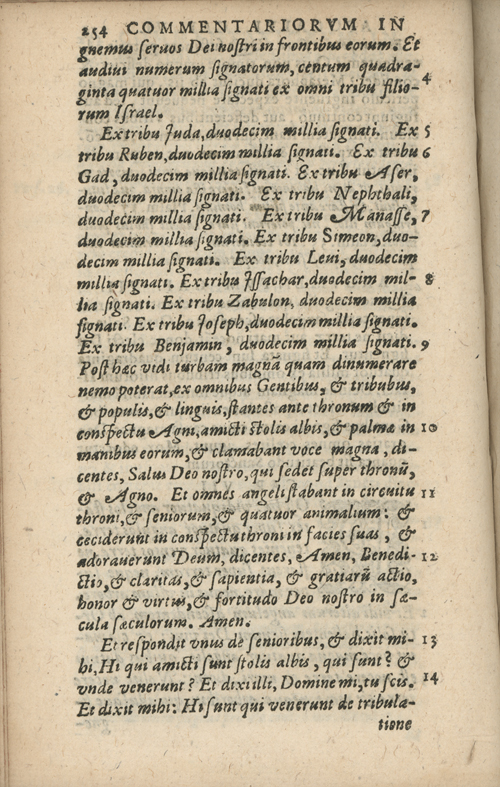 254 COMMENTARIORVM IN
gnemus ſeruos Dei noſtri in frontibus eorum. Et
audiui numerum ſignatorum, centum quadra-
ginta quatuor millia ſignati ex omni tribu filio- 4
rum Iſrael.
Ex tribu Juda, duodecim millia ſignati. Ex 5
tribu Ruben, duodecim millia ſignati. Ex tribu 6
Gad, duodecim millia ſignati. Ex tribu Aſer,
duodecim millia ſignati. Ex tribu Nephthali,
duodecim millia ſignati. Ex tribu Manaſſe, 7
duodecim millia ſignati. Ex tribu Simeon, duo-
decim millia ſignati. Ex tribu Leui, duodecim
millia ſignati. Ex tribu Jſſachar, duodecim mil- 8
lia ſignati. Ex tribu Zabulon, duodecim millia
ſignati. Ex tribu Joſeph, duodecim millia ſignati.
Ex tribu Benjamin, duodecim millia ſignati. 9
Poſt hæc vidi turbam magnã quam dinumerare
nemo poterat, ex omnibus Gentibus, & tribubus,
& populis, & linguis, ſtantes ante thronum & in
conſpectu Agni, amicti ſtolis albis, & palmæ in 10
manibus eorum, & clamabant voce magna, di-
centes, Salus Deo noſtro, qui ſedet ſuper thronũ,
& Agno. Et omnes angeli ſtabant in circuitu 11
throni, & ſeniorum, & quatuor animalium: &
ceciderunt in conſpectu throni in facies ſuas, &
adorauerunt Deum, dicentes, Amen, Benedi- 12
ctio, & claritas, & ſapientia, & gratiarũ actio,
honor & virtus, & fortitudo Deo noſtro in ſæ-
cula ſæculorum. Amen.
Et reſpondit vnus de ſenioribus, & dixit mi- 13
hi, Hi qui amicti ſunt ſtolis albis, qui ſunt? &
vnde venerunt? Et dixi illi, Domine mi, tu ſcis. 14
Et dixit mihi: Hi ſunt qui venerunt de tribula-
tione